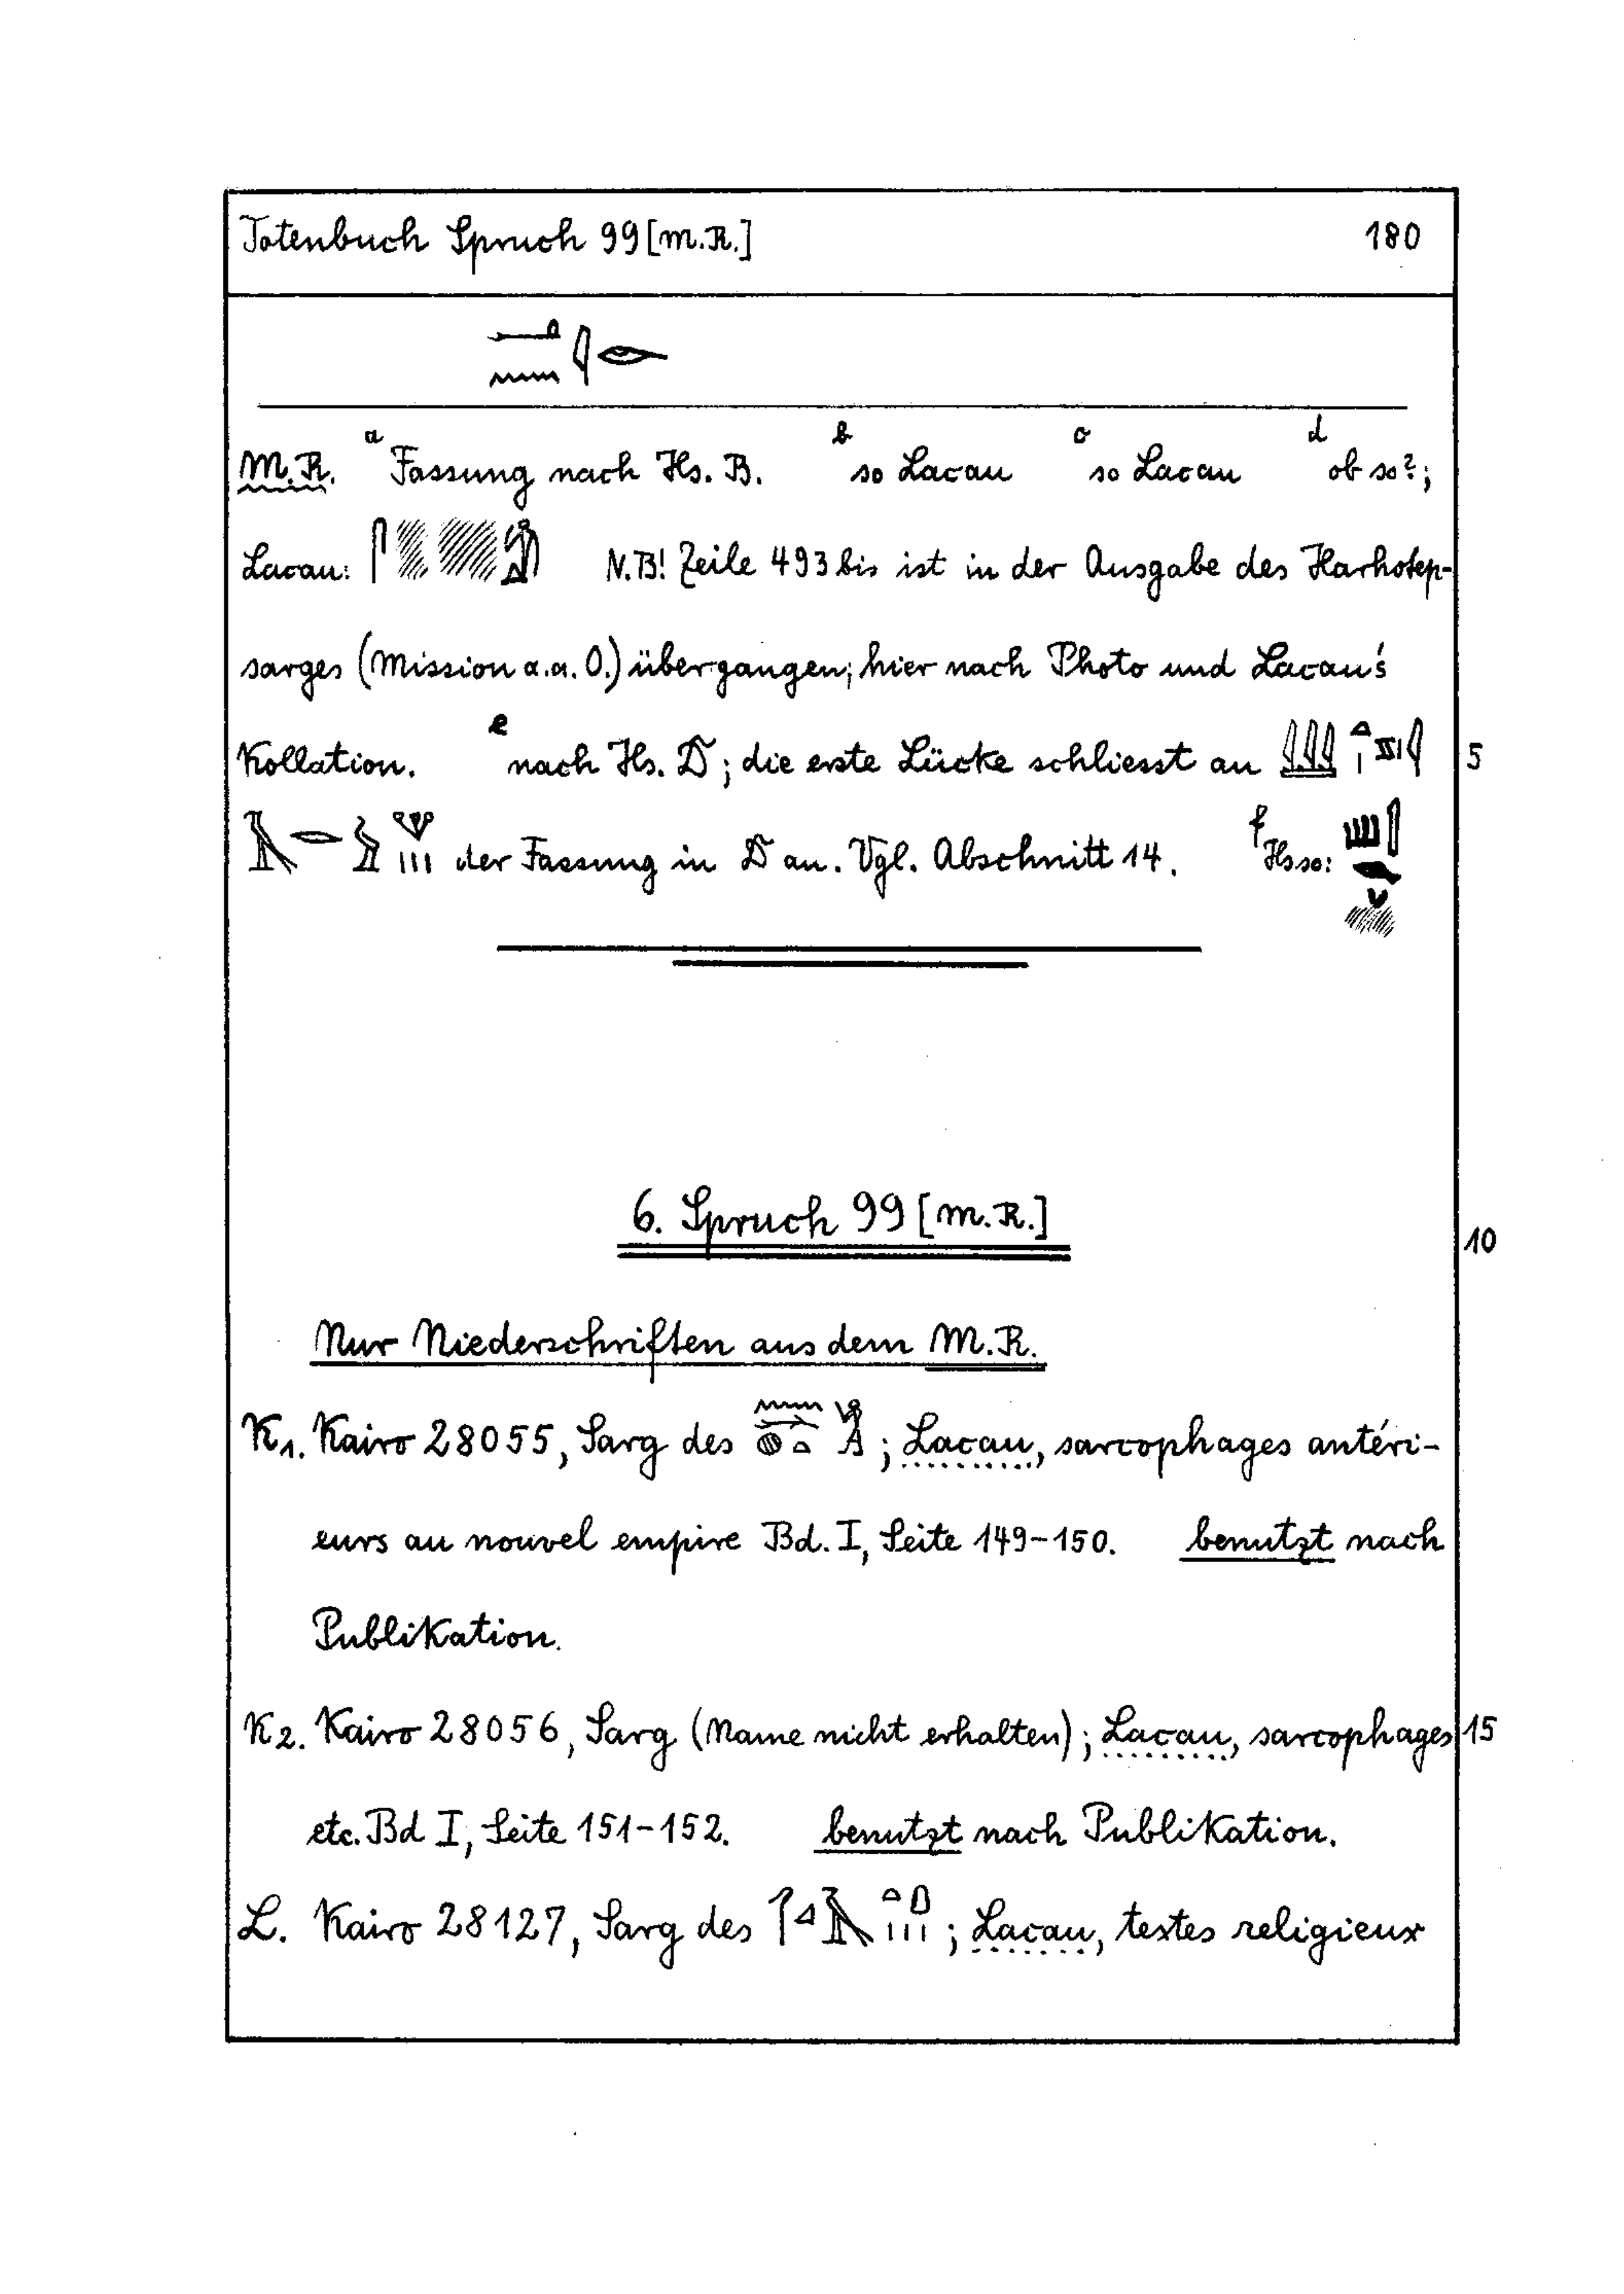 Totenbuch Spruch 99 [M.R.] 180
M.R. a Fassung nach Hs. B. b so Lacau c so Lacau d ob so?;
Lacau: N.B! Zeile 493 bis ist in der Ausgabe des Harhotep-
sarges (Mission a.a.O.) übergangen; hier nach Photo und Lacau's
Kollation. e nach Hs. D; die erste Lücke schliesst an 5
der Fassung in D an. Vgl. Abschnitt 14. f Hs. so:
6. Spruch 99 [M.R.] 10
Nur Niederschriften aus dem M.R.
K1. Kairo 28055, Sarg des ; Lacau, sarcophages antéri-
eurs au nouvel empire Bd. I, Seite 149-150. benutzt nach
Publikation.
K2. Kairo 28056, Sarg (Name nicht erhalten); Lacau, sarcophages 15
etc. Bd I, Seite 151-152. benutzt nach Publikation.
L. Kairo 28127, Sarg des ; Lacau, textes religieux